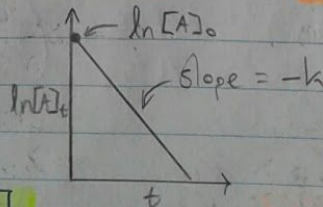 ln[A]₀
slope = -k
ln[A]ₜ
t